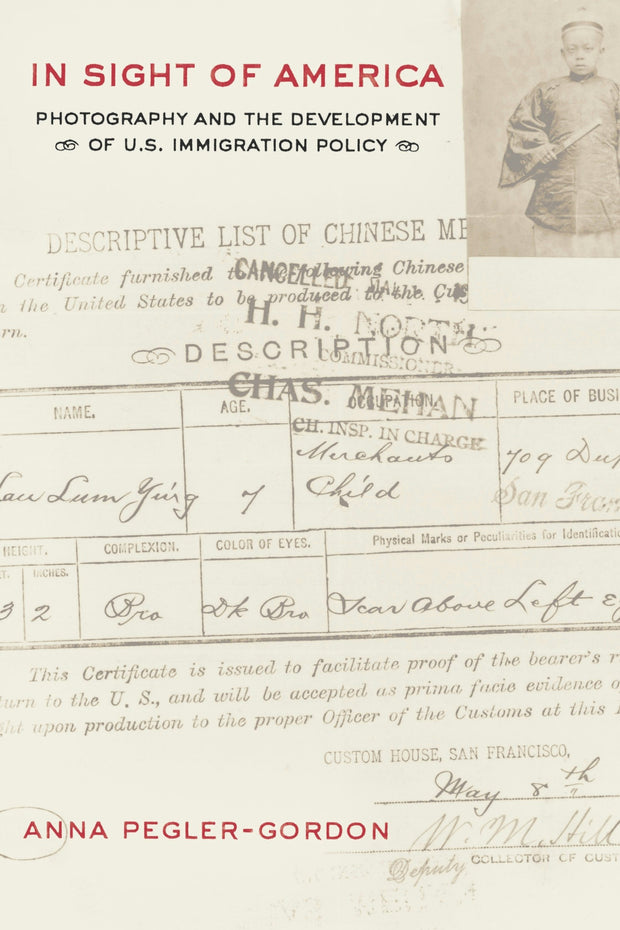 IN SIGHT OF AMERICA
PHOTOGRAPHY AND THE DEVELOPMENT
OF U.S. IMMIGRATION POLICY
DESCRIPTIVE LIST OF CHINESE ME
Certificate furnished to the following Chinese
n the United States to be produced to the Cus
rn.
CANCELLED
H. H. NORTH
DESCRIPTION
COMMISSIONER
CHAS. MEHAN
CH. INSP. IN CHARGE
NAME. AGE. OCCUPATION. PLACE OF BUSI
Lau Lum Ying 7 Merchants Child 709 Dup
San Fran
HEIGHT. COMPLEXION. COLOR OF EYES. Physical Marks or Peculiarities for Identificatio
ET. INCHES.
3 2 Bro Dk Bro Scar above Left Ey
This Certificate is issued to facilitate proof of the bearer's r
turn to the U. S., and will be accepted as prima facie evidence o
ght upon production to the proper Officer of the Customs at this
CUSTOM HOUSE, SAN FRANCISCO,
May 8th
ANNA PEGLER-GORDON
W. M. Hill
Deputy COLLECTOR OF CUST